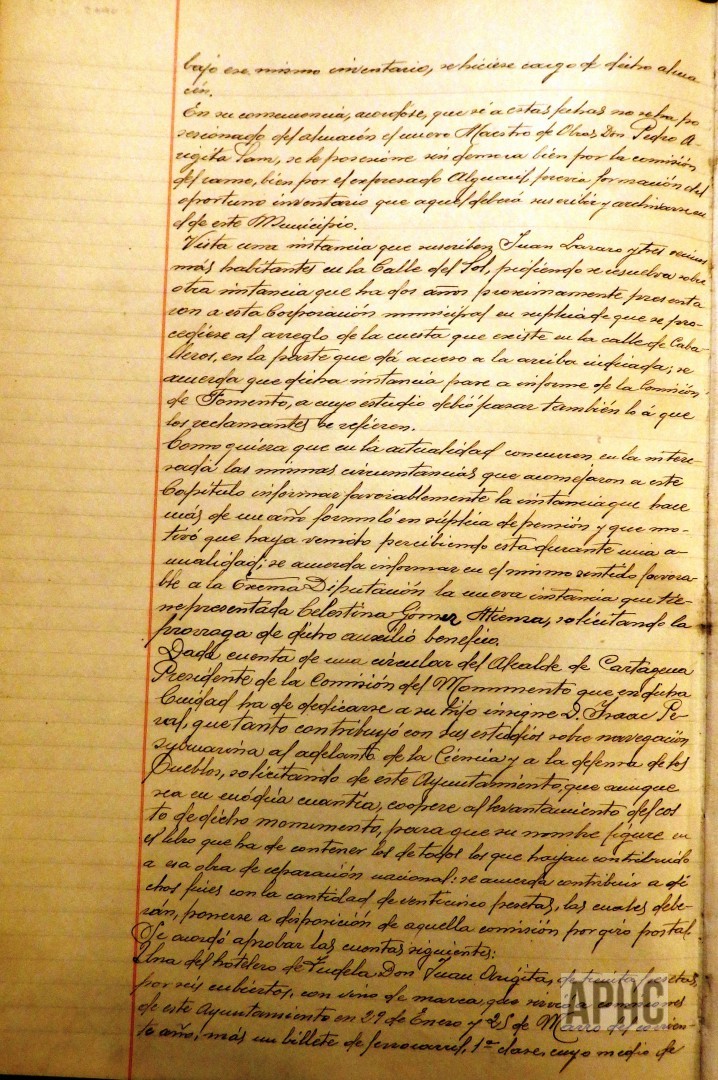 bajo ese mismo inventario, se hiciese cargo de dicho alma
cén.
En su consecuencia, acordóse, que si a estas fechas no se ha po
sesionado del almacén el nuevo Maestro de Obras, Don Pedro A-
rigita Lam, se le posesione sin demora bien por la comisión
del ramo, bien por el expresado Alguacil, previa formación del
oportuno inventario que aquel deberá suscribir y archivarse en
el de este Municipio.
Vista una instancia que suscriben Juan Lazaro y tres vecinos
más habitantes en la Calle del Sol, pidiendo se resuelva sobre
otra instancia que ha dos años proximamente presenta
ron a esta Corporación municipal en súplica de que se pro-
cediese al arreglo de la cuesta que existe en la calle de Caba-
lleros, en la parte que dá acceso a la arriba indicada; se
acuerda que dicha instancia pase a informe de la Comisión
de Fomento, a cuyo estudio debió pasar también lo á que
los reclamantes se refieren.
Como quiera que en la actualidad concurren en la intere-
sada las mismas circunstancias que aconsejaron a este
Capítulo informar favorablemente la instancia que hace
más de un año formuló en súplica de pensión y que mo-
tivó que haya venido percibiendo esta durante una a-
nualidad; se acuerda informar en el mismo sentido favora-
ble a la Exema Diputación la nueva instancia que tie-
ne presentada Celestina Gomez Atienza, solicitando la
prorroga de dicho auxilio benefico.
Dada cuenta de una circular del Alcalde de Cartagena
Presidente de la Comisión del Monumento que en dicha
Cuidad ha de dedicarse a su hijo insigne D. Isaac Pe-
ral, que tanto contribuyó con sus estudios sobre navegación
submarina al adelanto de la Ciencia y a la defensa de los
Pueblos, solicitando de este Ayuntamiento, que aunque
sea en módica cuantía, coopere al levantamiento del cos
to de dicho monumento, para que su nombre figure en
el libro que ha de contener los de todos los que hayan contribuido
a esa obra de reparación nacional: se acuerda contribuir a di
chos fines con la cantidad de venticinco pesetas, las cuales debe-
rán, ponerse a disposición de aquella comisión por giro postal.
Se acordó aprobar las cuentas siguientes:
Una del hotelero de Tudela Don Juan Arigita, de pesetas,
por seis cubiertos, con vino de marca, que sirvió a comisiones
de este Ayuntamiento en 29 de Enero y 25 de Marzo del corrien-
te año, más un billete de ferrocarril, 1ª clase, cuyo medio de
APHC